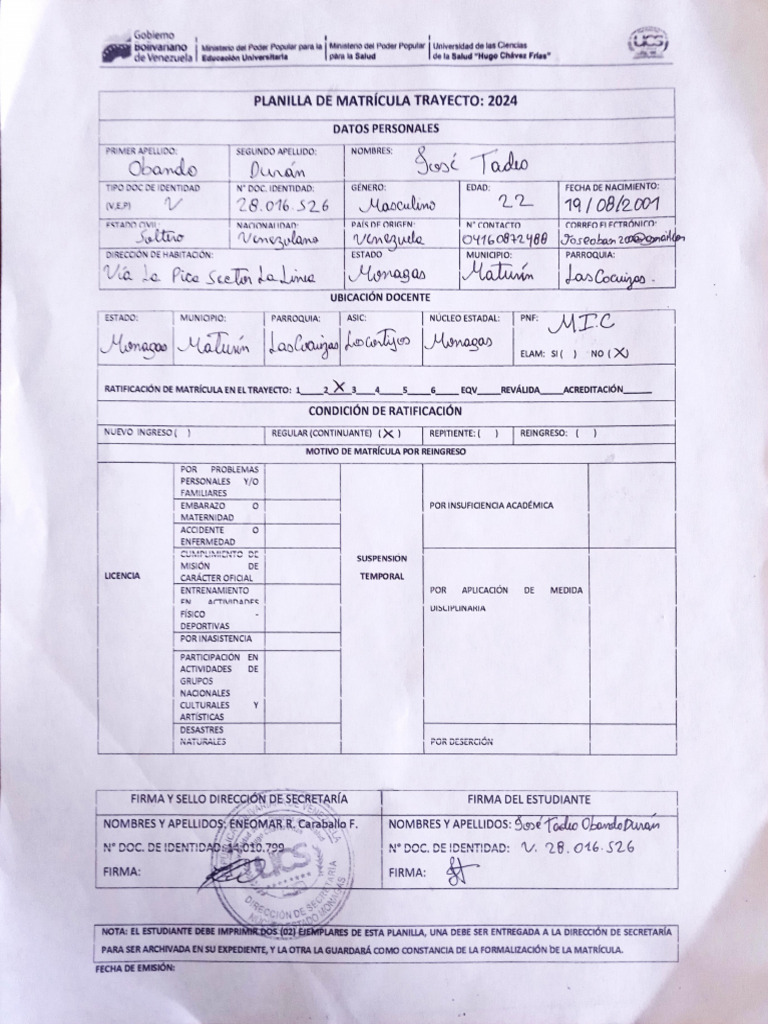 Gobierno
Bolivariano
de Venezuela
Ministerio del Poder Popular para la
Educación Universitaria
Ministerio del Poder Popular
para la Salud
Universidad de las Ciencias
de la Salud "Hugo Chávez Frías"
UCS
PLANILLA DE MATRÍCULA TRAYECTO: 2024
DATOS PERSONALES
PRIMER APELLIDO: Obando
SEGUNDO APELLIDO: Durán
NOMBRES: José Tadeo
TIPO DOC DE IDENTIDAD (V.E.P) V
N° DOC. IDENTIDAD: 28.016.526
GÉNERO: Masculino
EDAD: 22
FECHA DE NACIMIENTO: 19/08/2001
ESTADO CIVIL: Soltero
NACIONALIDAD: Venezolano
PAÍS DE ORIGEN: Venezuela
N° CONTACTO 04160872488
CORREO ELECTRÓNICO:
DIRECCIÓN DE HABITACIÓN: Vía La Pica Sector La Linea
ESTADO Monagas
MUNICIPIO: Maturín
PARROQUIA: Las Cocuizas.
UBICACIÓN DOCENTE
ESTADO: Monagas
MUNICIPIO: Maturín
PARROQUIA: Las Cocuizas
ASIC: Los Cortijos
NÚCLEO ESTADAL: Monagas
PNF: M.I.C
ELAM: SI ( ) NO (X)
RATIFICACIÓN DE MATRÍCULA EN EL TRAYECTO: 1____2_X_3____4____5____6____ EQV____REVÁLIDA____ACREDITACIÓN____
CONDICIÓN DE RATIFICACIÓN
NUEVO INGRESO ( )
REGULAR (CONTINUANTE) (X)
REPITIENTE: ( )
REINGRESO: ( )
MOTIVO DE MATRÍCULA POR REINGRESO
LICENCIA
POR PROBLEMAS
PERSONALES Y/O
FAMILIARES
EMBARAZO O
MATERNIDAD
ACCIDENTE O
ENFERMEDAD
CUMPLIMIENTO DE
MISIÓN DE
CARÁCTER OFICIAL
ENTRENAMIENTO
EN ACTIVIDADES
FÍSICO -
DEPORTIVAS
POR INASISTENCIA
PARTICIPACIÓN EN
ACTIVIDADES DE
GRUPOS
NACIONALES
CULTURALES Y
ARTÍSTICAS
DESASTRES
NATURALES
SUSPENSIÓN
TEMPORAL
POR INSUFICIENCIA ACADÉMICA
POR APLICACIÓN DE MEDIDA
DISCIPLINARIA
POR DESERCIÓN
FIRMA Y SELLO DIRECCIÓN DE SECRETARÍA
NOMBRES Y APELLIDOS: ENEOMAR R. Caraballo F.
N° DOC. DE IDENTIDAD: 14,010.799
FIRMA:
UCS
DIRECCIÓN DE SECRETARÍA
NÚCLEO ESTADO MONAGAS
FIRMA DEL ESTUDIANTE
NOMBRES Y APELLIDOS: José Tadeo Obando Durán
N° DOC. DE IDENTIDAD: V. 28.016.526
FIRMA:
NOTA: EL ESTUDIANTE DEBE IMPRIMIR DOS (02) EJEMPLARES DE ESTA PLANILLA, UNA DEBE SER ENTREGADA A LA DIRECCIÓN DE SECRETARÍA
PARA SER ARCHIVADA EN SU EXPEDIENTE, Y LA OTRA LA GUARDARÁ COMO CONSTANCIA DE LA FORMALIZACIÓN DE LA MATRÍCULA.
FECHA DE EMISIÓN: